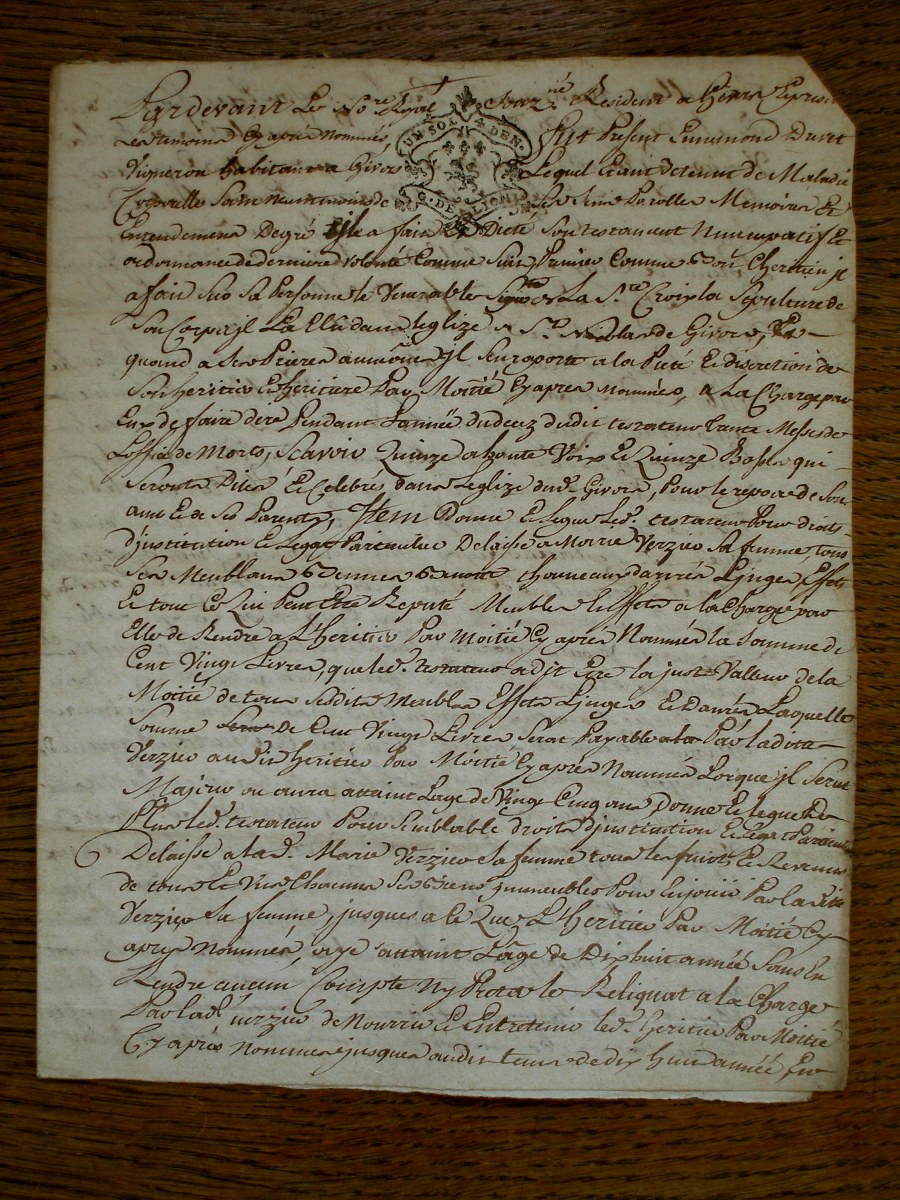 Pardevant Le No.re Royal Souz.né Resident a Givors Et presents
Les temoins Cy apres Nommés, fut Present Enmmond Duret
UN SOL 4 DEN.
G. DE LION
Vigneron habitant a Givors Lequel Etant detenut de Maladie
Corporelle Sain neantmoins de Ses Sens Parolles Memoires Et
Entendement De gré Il a fait Et Dicté Son testament Nuncupatif Et
ordonnance de derniere volonté Comme Suit, Premier Comme Bon Chretien jl
a fait Sus Sa Personne le Venerable Signe de La S.te Croix la Sepulture de
Son Corps jl L'a Elû dans leglize de S.t Nicolas de Givors, Et
quand a Ses Prieres aumônes jl Sen raporte a la Pieté Et discretion de
Son heritier Et heritiere Par Moitié Cy apres Nommés, a La Charge par
Eux de faire dire Pendant L'année du decez dudit testateur trente Messes de
L'office de Morts, Scavoir Quinze a haute Voix Et Quinze Basses qui
Seront Dites Et Celebrés dans Leglize dud. Givors, Pour le repos de Son
ame Et de Ses Parents, Item Donne Et legue Led. testateur Pour droits
d'jnstitution Et Legat Particulier Delaisse a Marie Verzier Sa femme, tous
Ses Meublans Bennes Benons thonneaux danrés Linges, Effets
Et tout Ce Qui Peut Etre Reputé Meubles Et Effets a la Charge par
Elle de Rendre a L'heritier Par Moitié Cy apres Nommés la Somme de
Cent Vingt Livres, que led. testateur a dit Etre la juste Valleur de la
Moitié de tous Sesdits Meubles Effets Linges Et Danrés Laquelle
Somme de Cent Vingt Livres Serat Payable Par ladite
Verzier audit heritier Par Moitié Cy apres Nommés Lorsque jl Serat
Majeur ou aura attaint Lage de Vingt Cinq ans Donne Et legue De
Plus led. testateur Pour Semblable droits d'jnstitution Et Legat Particulier
Delaisse a lad. Marie Verzier Sa femme tous les fruits Et Revenus
de tous Et Uns Chacuns Ses Biens jmmeubles Pour En jouir Par ladite
Verzier Sa femme, jusques a Ce Que L'heritier Par Moitié Cy
apres Nommés, aye attaint L'age de Dix huit année Sans En
Rendre aucun Compte Ny Preter le Reliquat a la Charge
Par lad. verzier de Nourrir Et Entretenir led. heritier Par Moitié
Cy apres Nommés jusques audit tems de dix huit année, Sur